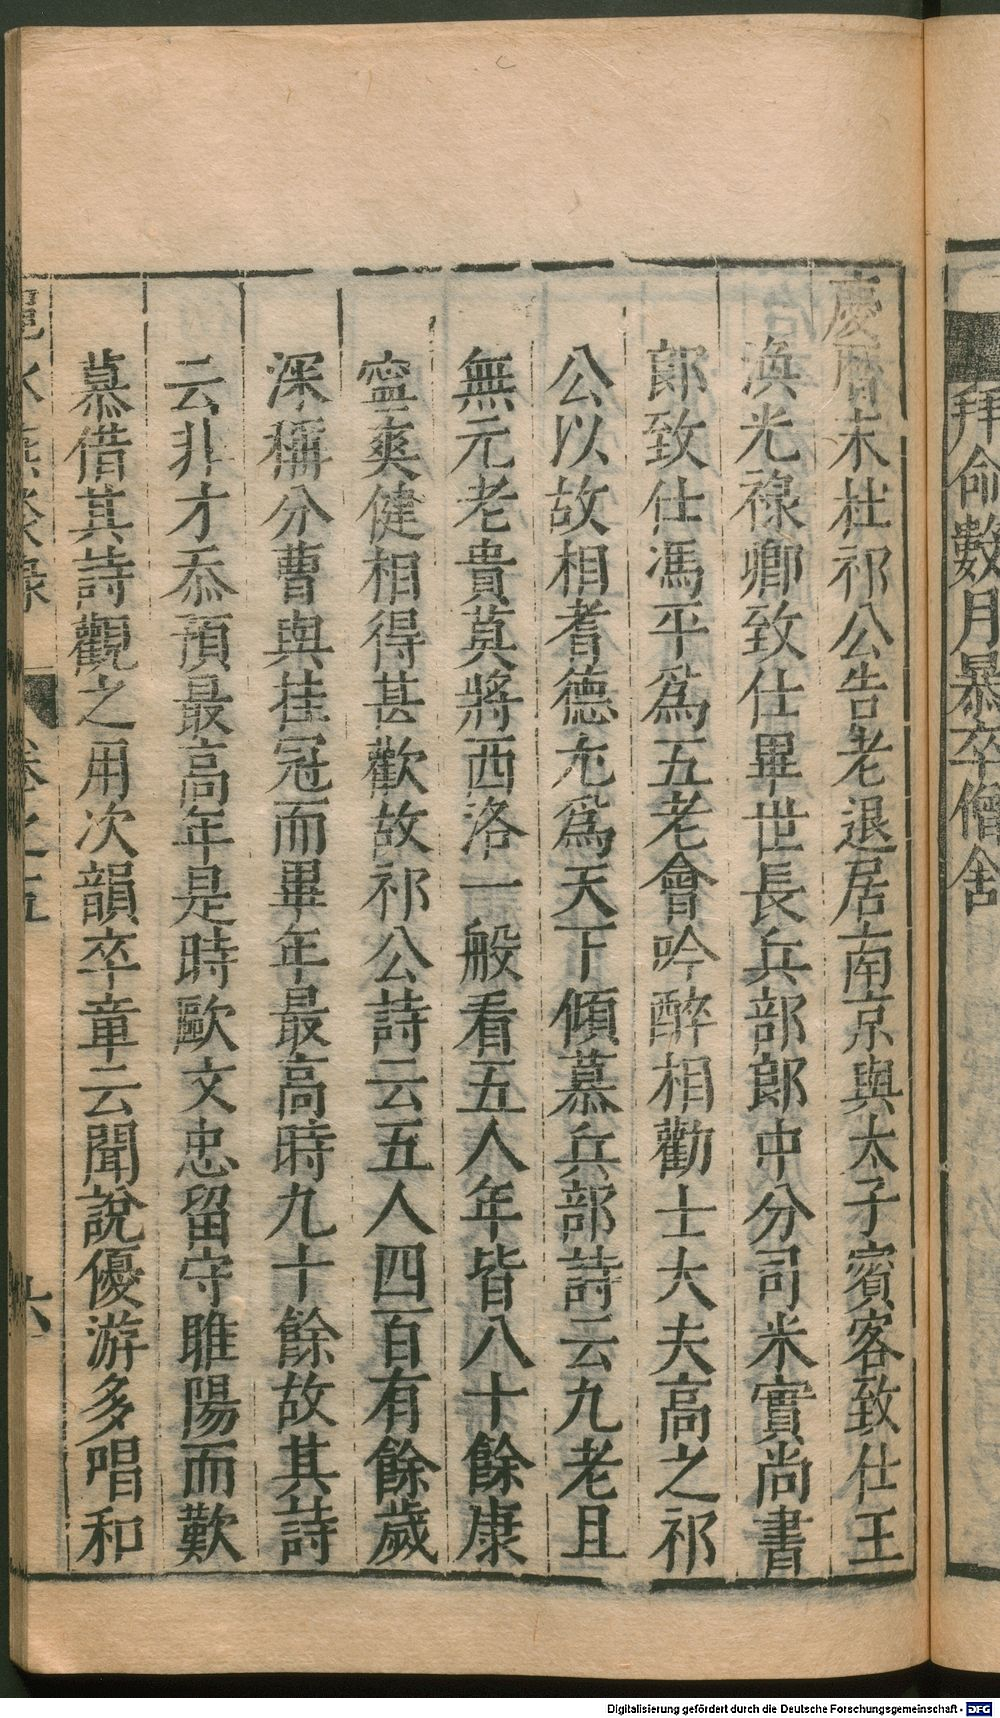 拜命數月暴卒僧舍
慶曆末杜祁公告老退居南京與太子賓客致仕王
渙光祿卿致仕畢世長兵部郎中分司米實尚書
郎致仕馮平爲五老會吟醉相勸士大夫高之祁
公以故相耆德尢爲天下傾慕兵部詩云九老且
無元老貴莫將西洛一般看五人年皆八十餘康
寧爽健相得甚歡故祁公詩云五人四百有餘歲
深稱分曹與挂冠而畢年最高時九十餘故其詩
云非才忝預最高年是時歐文忠留守睢陽而歎
慕借其詩觀之用次韻卒章云聞說優游多唱和
卷之五
六
Digitalisierung gefördert durch die Deutsche Forschungsgemeinschaft - DFG